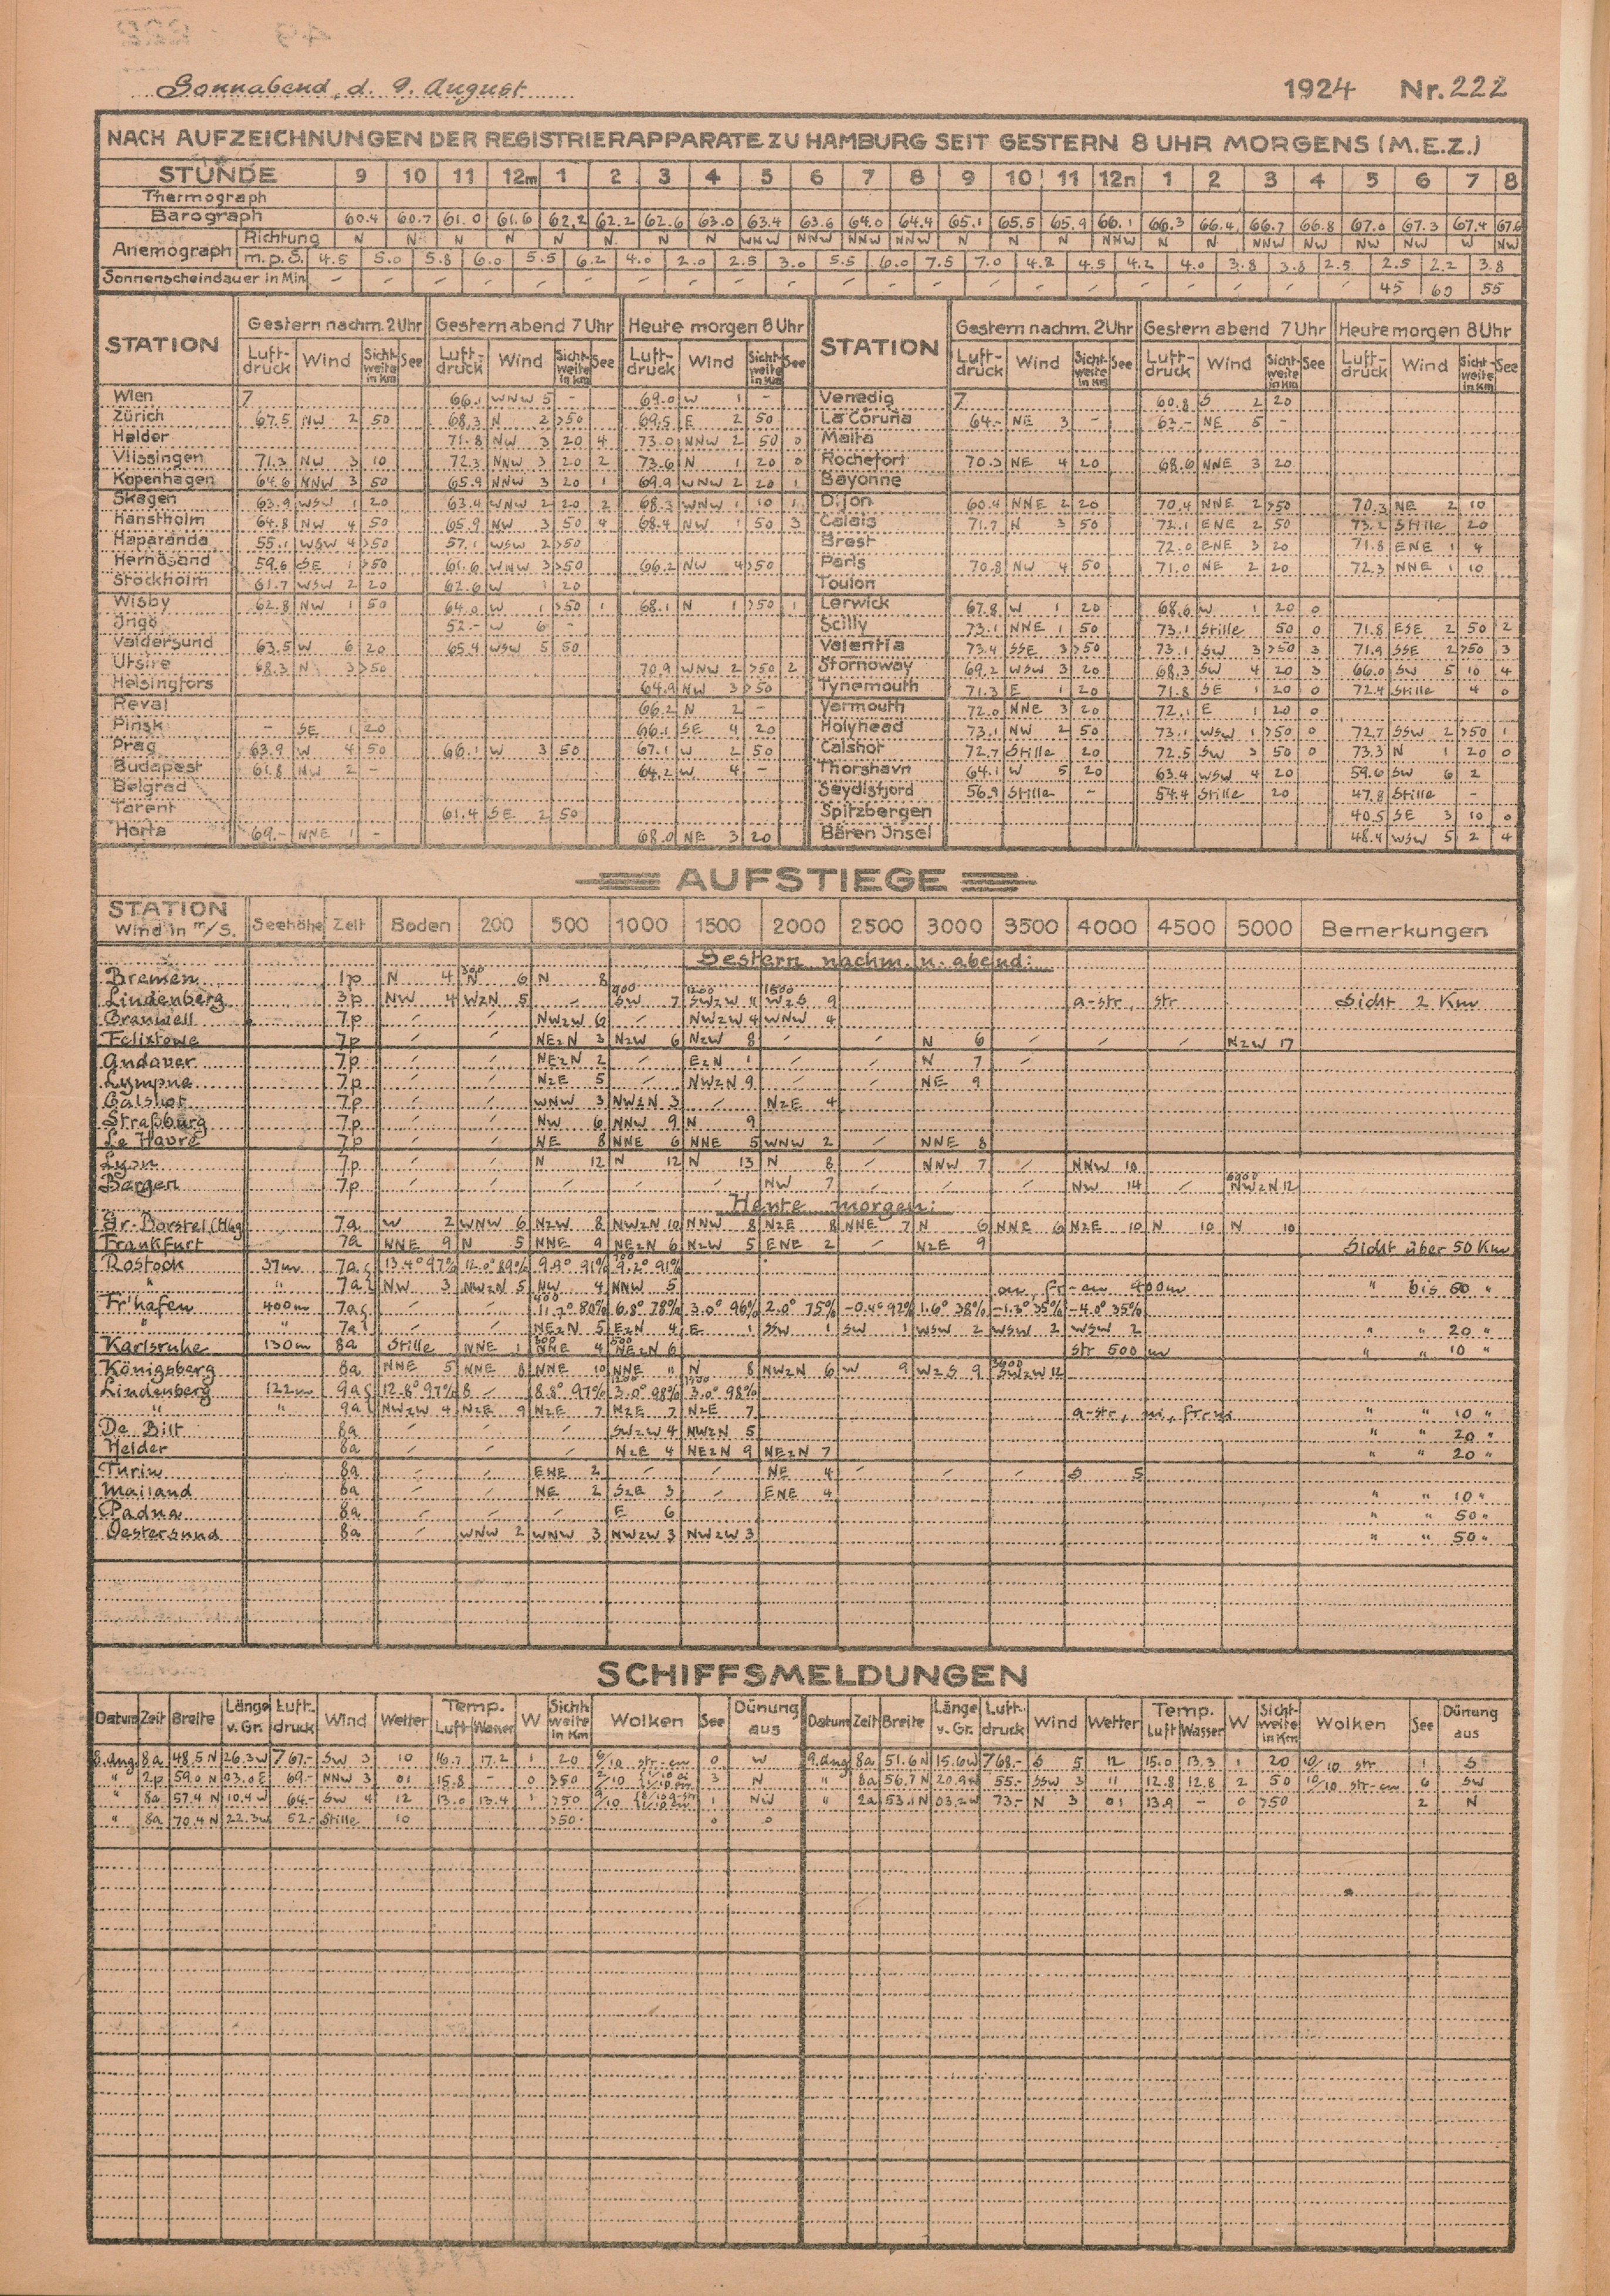 Sonnabend, d. 9. August 1924 Nr. 222
NACH AUFZEICHNUNGEN DER REGISTRIERAPPARATE ZU HAMBURG SEIT GESTERN 8 UHR MORGENS (M.E.Z.)
STUNDE 9 10 11 12m 1 2 3 4 5 6 7 8 9 10 11 12n 1 2 3 4 5 6 7 8
Thermograph
Barograph 60.4 60.7 61.0 61.6 62.2 62.2 62.6 63.0 63.4 63.6 64.0 64.4 65.1 65.5 65.9 66.1 66.3 66.4 66.7 66.8 67.0 67.3 67.4 67.6
Anemograph Richtung N N N N N N N N WNW NNW NNW NNW N N N NNW N N NNW NW NW NW W NW
m.p.S. 4.5 5.0 5.8 6.0 5.5 6.2 4.0 2.0 2.5 3.0 5.5 6.0 7.5 7.0 4.8 4.5 4.2 4.0 3.8 3.8 2.5 2.5 2.2 3.8
Sonnenscheindauer in Min 45 60 55
STATION Gestern nachm. 2 Uhr Gestern abend 7 Uhr Heute morgen 8 Uhr STATION Gestern nachm. 2 Uhr Gestern abend 7 Uhr Heute morgen 8 Uhr
Luftdruck Wind Sichtweite in Km See Luftdruck Wind Sichtweite in Km See Luftdruck Wind Sichtweite in Km See Luftdruck Wind Sichtweite in Km See Luftdruck Wind Sichtweite in Km See Luftdruck Wind Sichtweite in Km See
Wien 7 66.1 WNW 5 - 69.0 W 1 - Venedig 7 60.8 S 2 20
Zürich 67.5 NW 2 50 68.3 N 2 >50 69.5 E 2 50 La Coruña 64.- NE 3 - 62.- NE 5 -
Helder 71.8 NW 3 20 4 73.0 NNW 2 50 0 Malta
Vlissingen 71.3 NW 3 10 72.3 NNW 3 20 2 73.6 N 1 20 0 Rochefort 70.3 NE 4 20 68.6 NNE 3 20
Kopenhagen 64.6 NNW 3 50 65.9 NNW 3 20 1 69.9 WNW 2 20 1 Bayonne
Skagen 63.9 WSW 1 20 63.4 WNW 2 20 2 68.3 WNW 1 10 1 Dijon 60.4 NNE 2 20 70.4 NNE 2 >50 70.3 NE 2 10
Hanstholm 64.8 NW 4 50 65.9 NW 3 50 4 68.4 NW 1 50 3 Calais 71.7 N 3 50 72.1 ENE 2 50 73.2 Stille 20
Haparanda 55.1 WSW 4 >50 57.1 WSW 2 >50 Brest 72.0 ENE 3 20 71.8 ENE 1 4
Hernösand 59.6 SE 1 >50 61.6 WNW 3 >50 66.2 NW 4 >50 Paris 70.8 NW 4 50 71.0 NE 2 20 72.3 NNE 1 10
Stockholm 61.7 WSW 2 20 62.6 W 1 20 Toulon
Wisby 62.8 NW 1 50 64.0 W 1 >50 1 68.1 N 1 >50 1 Lerwick 67.8 W 1 20 68.6 W 1 20 0
Ingö 52.- W 6 - Scilly 73.1 NNE 1 50 73.1 Stille 50 0 71.8 ESE 2 50 2
Valdersund 63.5 W 6 20 65.4 WSW 5 50 Valentia 73.4 SSE 3 >50 73.1 SW 3 >50 3 71.9 SSE 2 >50 3
Utsire 68.3 N 3 >50 70.9 WNW 2 >50 2 Stornoway 69.2 WSW 3 20 68.3 SW 4 20 3 66.0 SW 5 10 4
Helsingfors 64.9 NW 3 >50 Tynemouth 71.3 E 1 20 71.8 SE 1 20 0 72.4 Stille 4 0
Reval 66.2 N 2 - Yarmouth 72.0 NNE 3 20 72.1 E 1 20 0
Pinsk - SE 1 20 66.1 SE 4 20 Holyhead 73.1 NW 2 50 73.1 WSW 1 >50 0 72.7 SSW 2 >50 1
Prag 63.9 W 4 50 66.1 W 3 50 67.1 W 2 50 Calshot 72.7 Stille 20 72.5 SW 3 50 0 73.3 N 1 20 0
Budapest 61.8 NW 2 - 64.2 W 4 - Thorshavn 64.1 W 5 20 63.4 WSW 4 20 59.6 SW 6 2
Belgrad Seydisfjord 56.9 Stille - 54.4 Stille 20 47.8 Stille -
Tarent 61.4 SE 2 50 Spitzbergen 40.5 SE 3 10 0
Horta 69.- NNE 1 - 68.0 NE 3 20 Bären Insel 48.4 WSW 5 2 4
AUFSTIEGE
STATION Wind in m/s. Seehöhe Zeit Boden 200 500 1000 1500 2000 2500 3000 3500 4000 4500 5000 Bemerkungen
Gestern nachm. u. abend:
Bremen 1p N 4 300 N 6 N 8
Lindenberg 3p NW 4 WzN 5 - 900 SW 7 1200 SWzW 11 1500 WzS 9 a-str, str Sicht 2 Km
Cranwell 7p NWzW 6 NWzW 4 WNW 4
Felixtowe 7p NEzN 3 NzW 6 NzW 8 N 6 NzW 17
Andover 7p NEzN 2 EzN 1 N 7
Lympne 7p NzE 5 NWzN 9 NE 9
Calshot 7p WNW 3 NWzN 3 NzE 4
Straßburg 7p NW 6 NNW 9 N 9
Le Havre 7p NE 8 NNE 6 NNE 5 WNW 2 NNE 8
Lyon 7p N 12 N 12 N 13 N 8 NNW 7 NNW 10
Bergen 7p NW 7 NW 14 NWzN 12
Heute morgen:
Gr-Borstel (Hbg 7a W 2 WNW 6 NzW 8 NWzN 10 NNW 8 NzE 8 NNE 7 N 6 NNE 6 NzE 10 N 10 N 10
Frankfurt 7a NNE 9 N 5 NNE 9 NEzN 6 NzW 5 ENE 2 NzE 9 Sicht über 50 Km
Rostock 37m 7a 13.4° 97% 12.0° 89% 9.9° 91% 900 9.2° 91%
" " 7a NW 3 NWzN 5 NW 4 NNW 5 cu, fr-cu 900m " bis 50 "
Fr'hafen 400m 7a 400 11.2° 80% 6.8° 78% 3.0° 96% 2.0° 75% -0.4° 92% 1.6° 38% -1.3° 35% -4.0° 35%
" " 7a NEzN 5 EzN 4 E 1 SSW 1 SW 1 WSW 2 WSW 2 WSW 2 " " 20 "
Karlsruhe 130m 8a Stille NNE 1 500 NNE 4 NEzN 6 str 500 m " " 10 "
Königsberg 8a NNE 5 NNE 8 NNE 10 NNE 11 N 8 NWzN 6 W 9 WzS 9 SWzW 12
Lindenberg 122m 9a 12.8° 97% 8.8° 97% 1200 3.0° 98% 1300 3.0° 98%
" " 9a NWzW 4 NzE 9 NzE 7 NzE 7 NzE 7 a-str, ni, frni " " 10 "
De Bilt 8a SWzW 4 NWzN 5 " " 20 "
Helder 8a NzE 4 NEzN 9 NEzN 7 " " 20 "
Turin 8a ENE 2 NE 4 S 5
Mailand 8a NE 2 SzE 3 ENE 4 " " 10 "
Padua 8a E 6 " " 50 "
Oestersund 8a WNW 2 WNW 3 NWzW 3 NWzW 3 " " 50 "
SCHIFFSMELDUNGEN
Datum Zeit Breite Länge v. Gr. Luftdruck Wind Wetter Temp. Luft Wasser W Sichtweite in Km Wolken See Dünung aus Datum Zeit Breite Länge v. Gr. Luftdruck Wind Wetter Temp. Luft Wasser W Sichtweite in Km Wolken See Dünung aus
8. Aug. 8a 48.5 N 26.3 W 767.- SW 3 10 16.7 17.2 1 20 str-cu 0 W 9. Aug 8a 51.6 N 15.6 W 768.- S 5 12 15.0 13.3 1 20 10/10 str 1 S
" 2p 59.0 N 03.0 E 69.- NNW 3 01 15.8 - 0 >50 3 N " 8a 56.7 N 20.9 W 55.- SSW 3 11 12.8 12.8 2 50 10/10 str-cu 6 SW
" 8a 57.4 N 10.4 W 64.- SW 4 12 13.0 13.4 1 >50 1 NW " 2a 53.1 N 03.2 W 73.- N 3 01 13.9 - 0 >50 2 N
" 8a 70.4 N 22.3 W 52.- Stille 10 >50 0 0